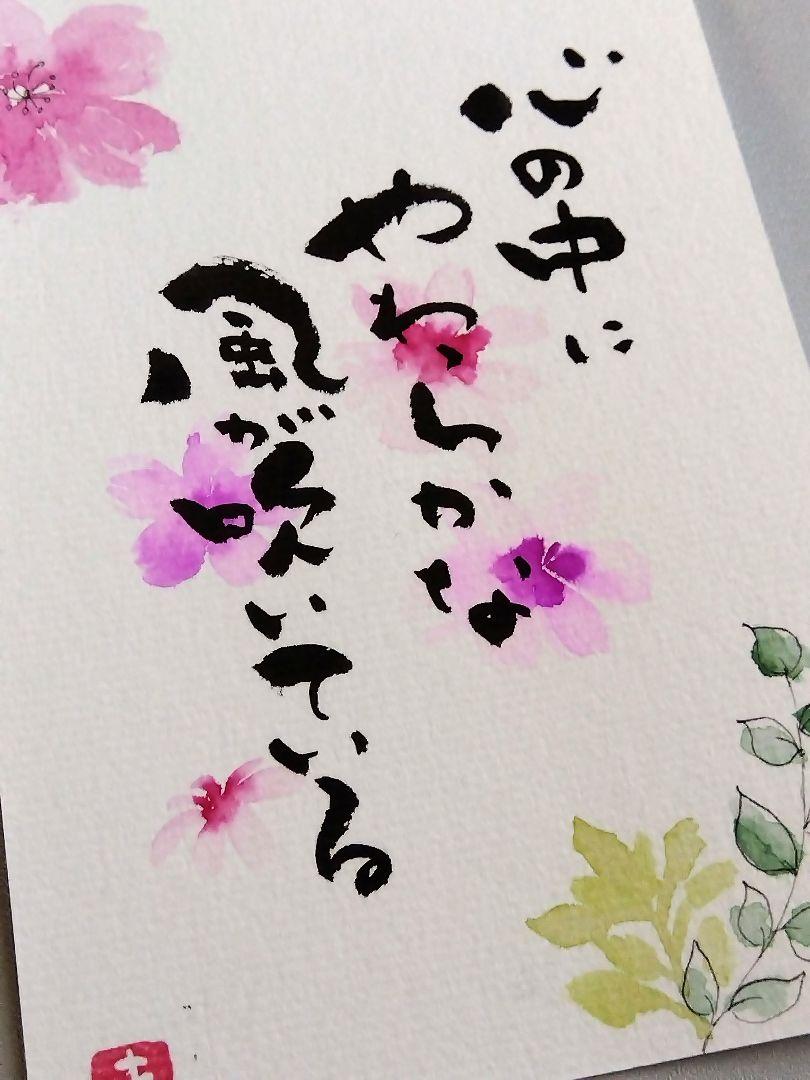 心の中に
やわらかな
風が吹いている
ち